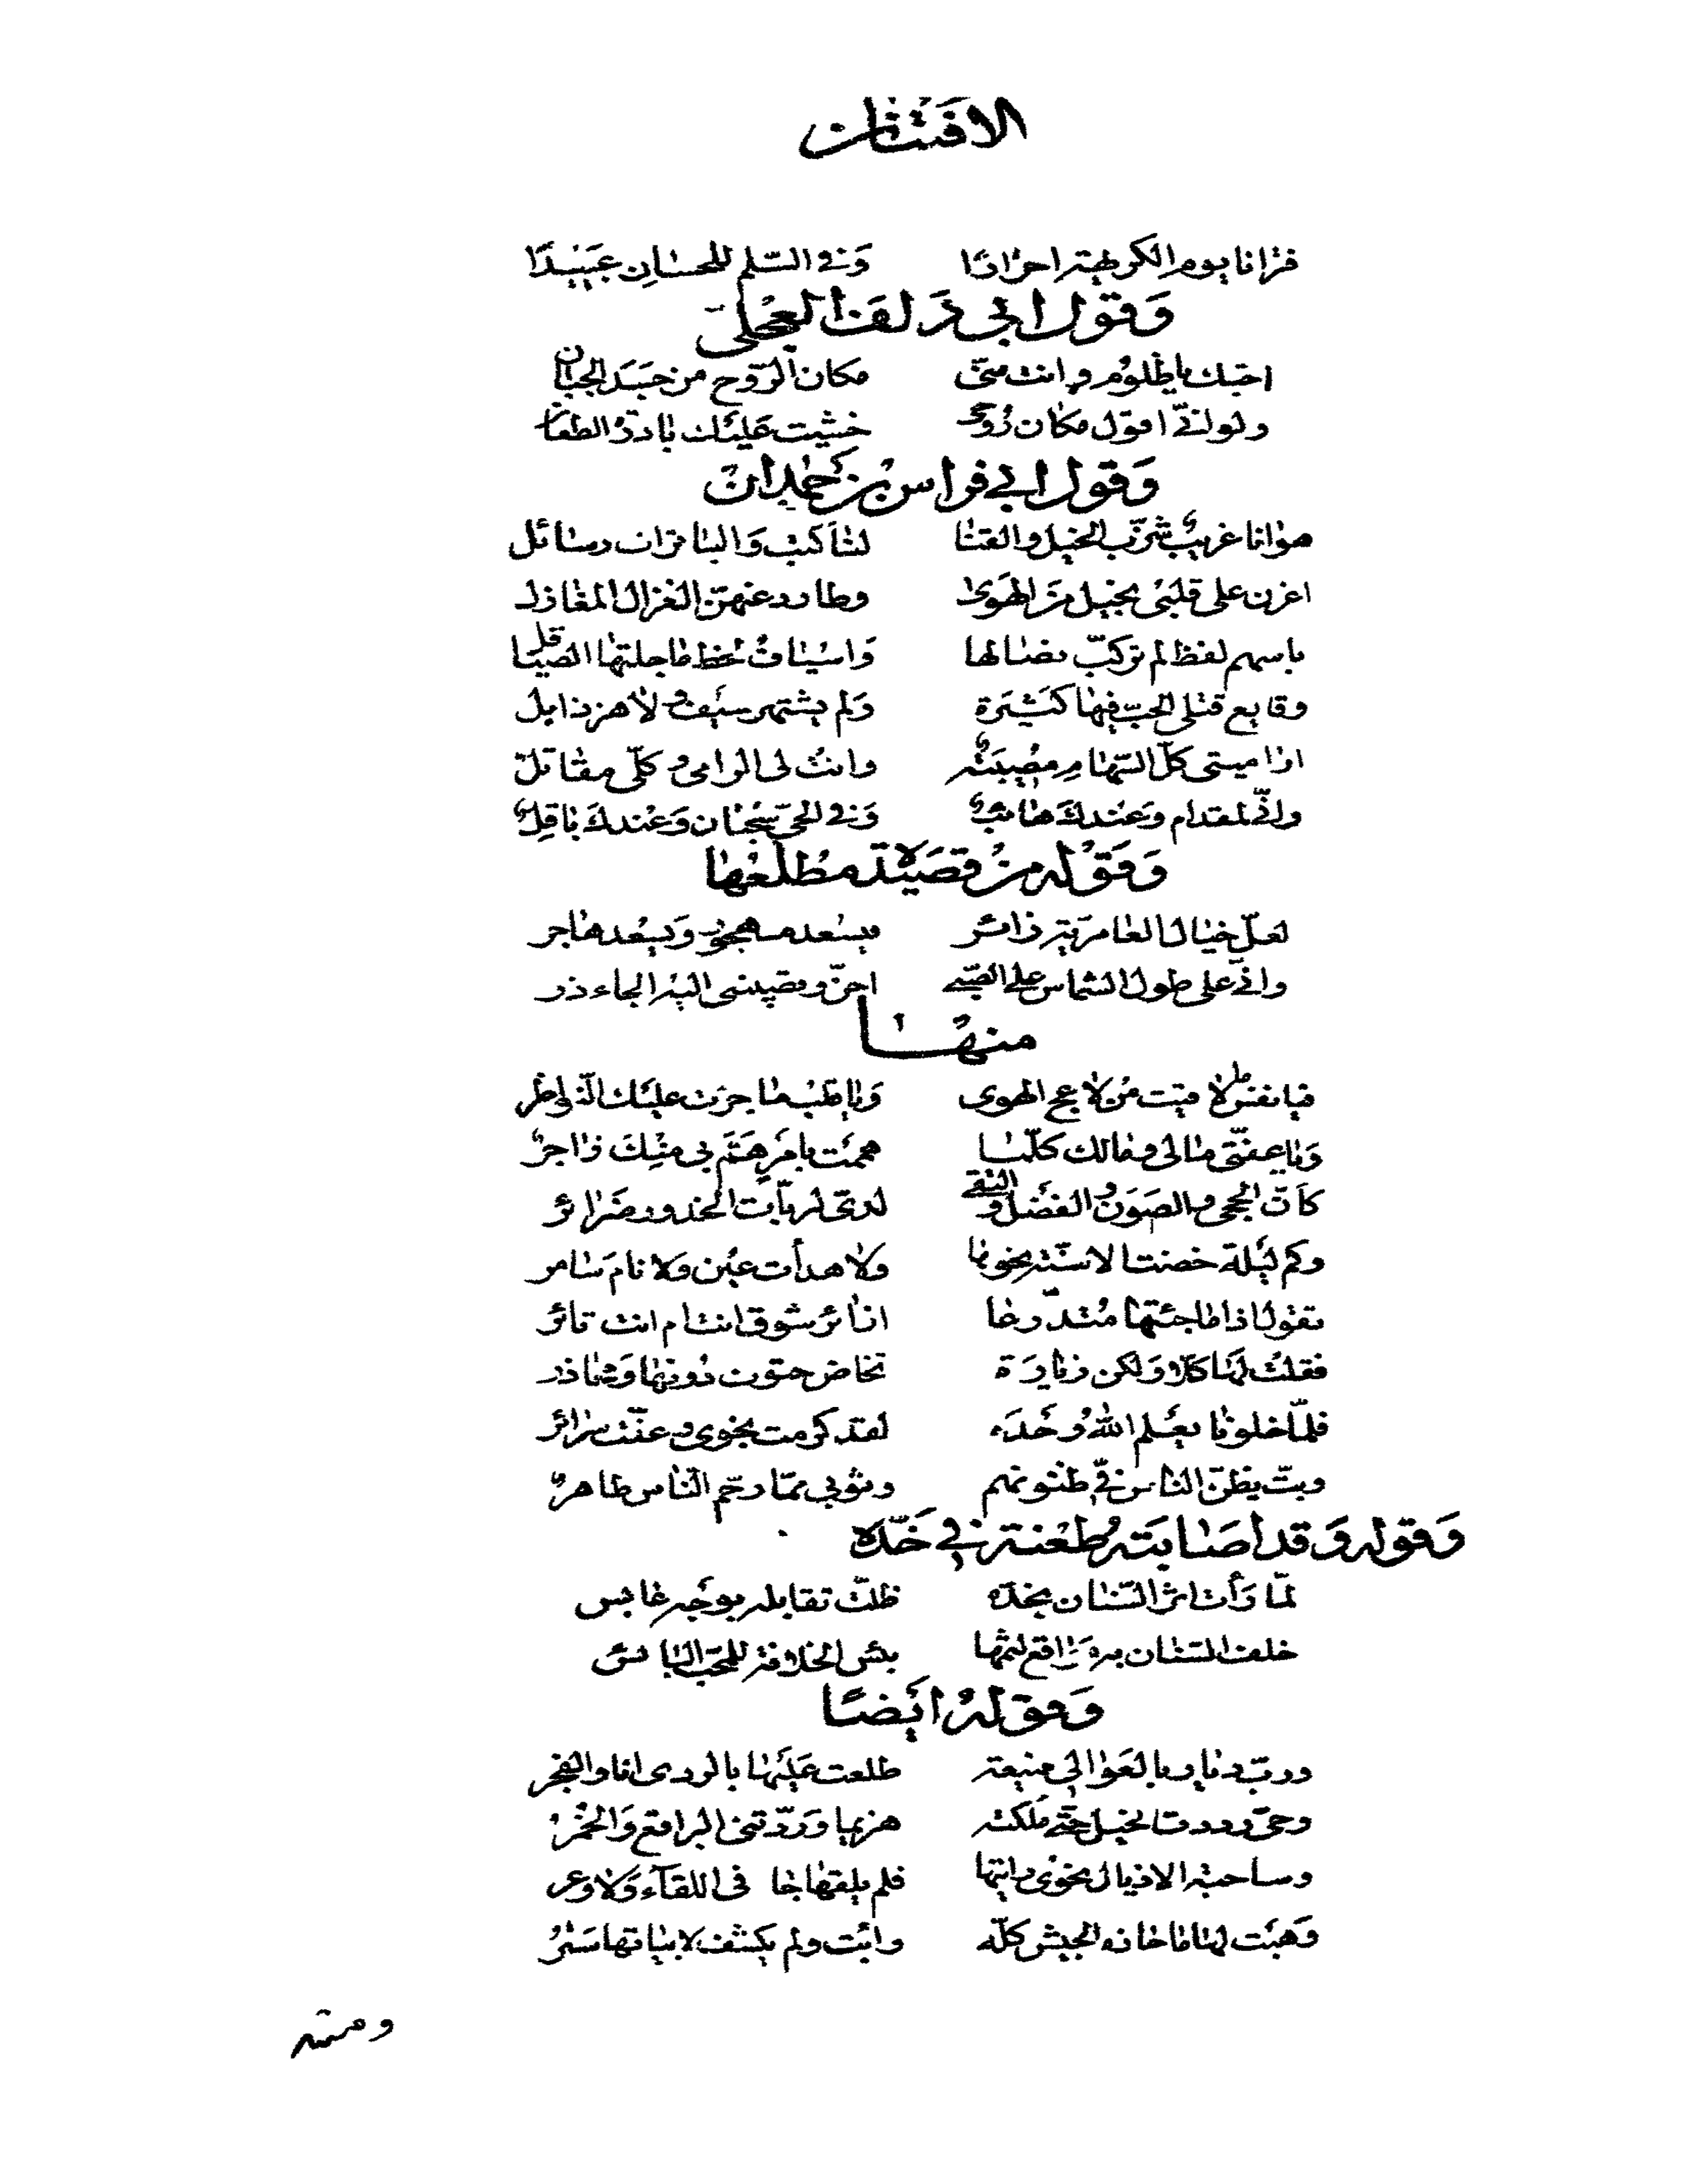 الافتنان
فترانا يوم الكريهة احرارًا وَفي السّلم للحسان عَبيدًا
وَقول ابي دَلف العجلي
احبّك يا ظلوم وانت منّي مكان الرّوح من جَسَد الجبان
ولو انّي اقول مكان روحي خشيت عليك بادرة الطعان
وَقول ابي فراس بن حَمدان
لنا كتب وَالباترات رسائل
اغرن على قلبي بخيل من الهَوى وطارد عنهنّ الغزال المغازل
باسهم لفظ لم تركّب نصالها وَاسياف لحظ ما جلتها الصياقل
وقايع قتلى الحبّ فيها كثيرَة وَلم يشتهر سيف ولا هز ذابل
كلّ السّهام مصيبَة وانت لي الرامي وكلّي مقاتل
وانّي لمقدام وعندك هائب وَفي الحيّ سحبان وَعندك باقل
وَقوله من قصيدة مطلعها
لعلّ خيال العامريّة زائر فيسعد مهجور وَيسعد هاجر
وانّي على طول الشماس على الصّبى احنّ وتصبيني اليه الجاءذر
منهَا
فيا نفس لا قيت من لاعج الهوى وَيا قلب ما جرّت عليك النّواظر
وَيا عفّتي مالي ومالك كلّما هممت بامر همّ بي منك زاجر
كأنّ الحجى والصَوَن والفضل والتقى لديّ لربّات الخدور ضَرائر
وكم ليلة خضت الاسنّة نحوها وَلا هدأت عين ولا نامَ سامر
تقول اذا ما جئتها مُتدرّعا ازائر شوق انت ام انت ثائر
فقلت لها كلّا وَلكن زيارَة تخاض حتوف دونها وَتحاذر
فلمّا خلونا يعلم الله وَحدَه لقد كرمت نجوى وعفّت سرائر
وبتّ يظنّ الناس فيّ ظنونهم وثوبي ممّا رجّم النّاس طاهر
وَقوله وَقد اصَابَته طعنة في خَدّه
لمّا رَأت اثر السّنان بخدّه ظلّت تقابله بوَجه عابس
خلف السّنان به مَواقع لثمها بئس الخلافة للمحبّ البائس
وَقوله ايضًا
وربّ دار بالعَوالي منيعة طلعت عَليها بالردى انا والفجر
وحيّ رددت الخيل حتّى مَلكته هزيما وَرَدّتني البراقع وَالخمر
وساحبة الاذيال نحوي لقيتها فلم يلقها جا في اللقآء وَلا وعر
وَهبت لها ما حازه الجيش كلّه وابت ولم يكشف لابياتها ستر
ومنه